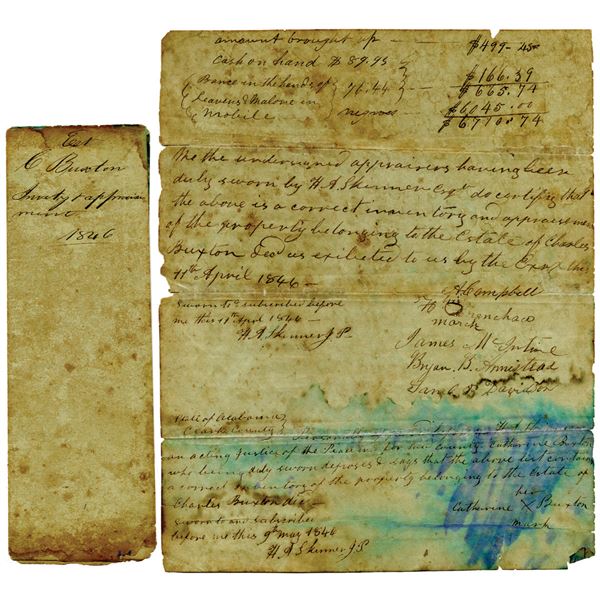 Est
C Buxton
Invty & apprais
ment
1846
amount brought up — — $499-45
Cash on hand $89.95
Bance in the hands of
Leavens & Malone in 76.44 — $166.39
Mobile $665.74
negroes — $6045.00
$6710.74
We the undersigned appraisers having been
duly sworn by H. A. Skinner Esqr do certify that
the above is a correct inventory and appraisment
of the property belonging to the Estate of Charles
Buxton Decd as exibited to us by the Exrx this
11th April 1846 —
sworn to & subscribed before
me this 11th Aprl 1846 —
H A Skinner J.P.
Campbell
his
mark
James McIntire
Bryan B. Armistead
Davidson
State of Alabama
Clarke County Personally
an acting Justice of the Peace in & for said county Catharine Buxton
who being duly sworn deposes & says that the above list contains
a correct inventory of the property belonging to the Estate of
Charles Buxton decd —
sworn to and subscribed
before me this 9th May 1846
H. A Skinner J P
her
Catherine X Buxton
mark